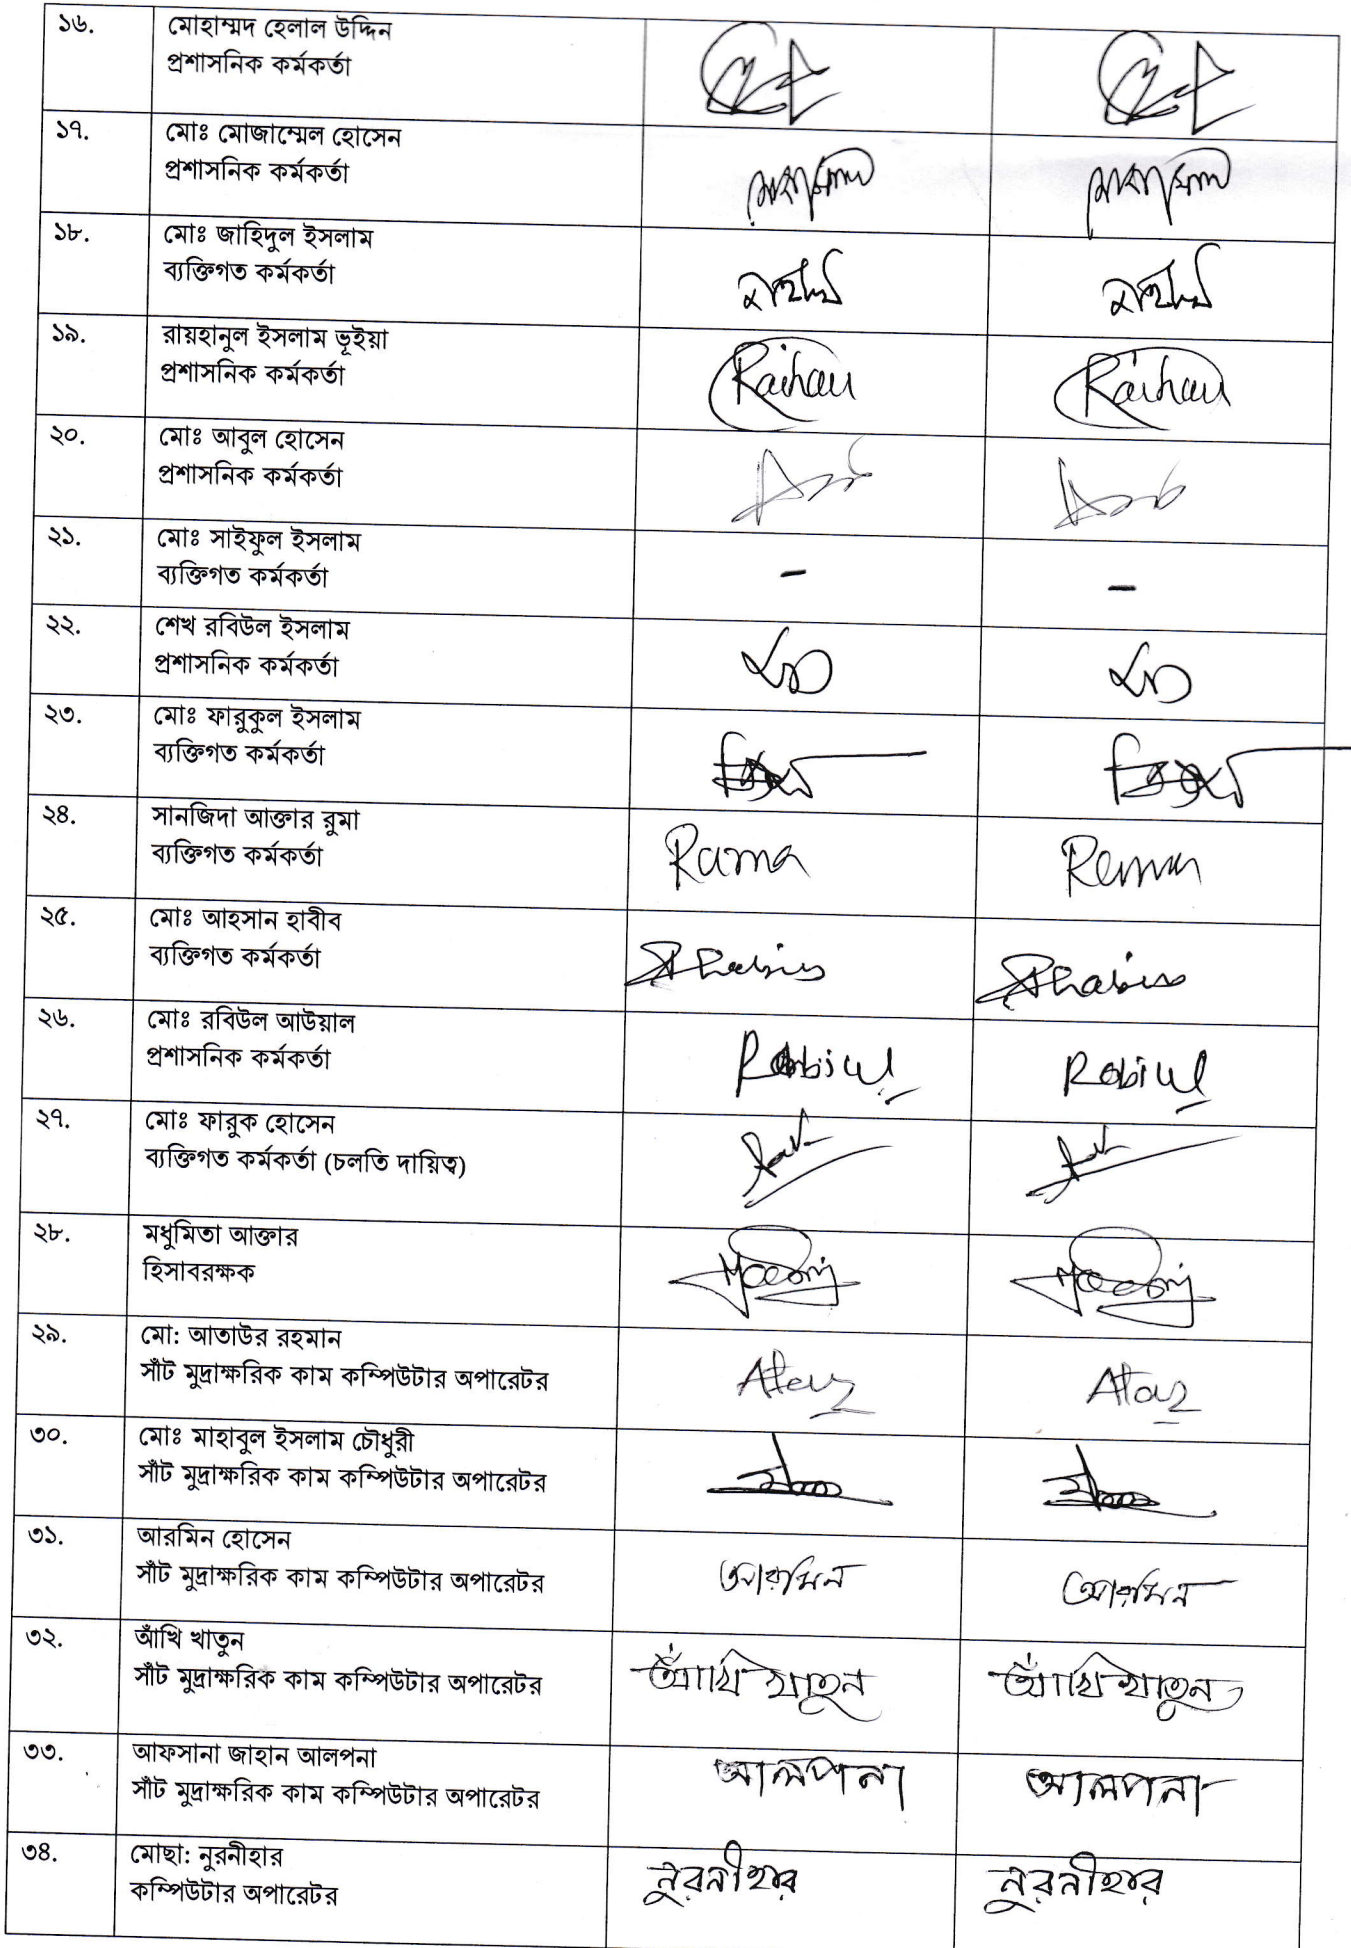 ১৬.
মোহাম্মদ হেলাল উদ্দিন
প্রশাসনিক কর্মকর্তা
১৭.
মোঃ মোজাম্মেল হোসেন
প্রশাসনিক কর্মকর্তা
১৮.
মোঃ জাহিদুল ইসলাম
ব্যক্তিগত কর্মকর্তা
১৯.
রায়হানুল ইসলাম ভূইয়া
প্রশাসনিক কর্মকর্তা
Raihan Raihan
২০.
মোঃ আবুল হোসেন
প্রশাসনিক কর্মকর্তা
২১.
মোঃ সাইফুল ইসলাম
ব্যক্তিগত কর্মকর্তা
- -
২২.
শেখ রবিউল ইসলাম
প্রশাসনিক কর্মকর্তা
২৩.
মোঃ ফারুকুল ইসলাম
ব্যক্তিগত কর্মকর্তা
২৪.
সানজিদা আক্তার রুমা
ব্যক্তিগত কর্মকর্তা
২৫.
মোঃ আহসান হাবীব
ব্যক্তিগত কর্মকর্তা
২৬.
মোঃ রবিউল আউয়াল
প্রশাসনিক কর্মকর্তা
Robiul Robiul
২৭.
মোঃ ফারুক হোসেন
ব্যক্তিগত কর্মকর্তা (চলতি দায়িত্ব)
২৮.
মধুমিতা আক্তার
হিসাবরক্ষক
২৯.
মো: আতাউর রহমান
সাঁট মুদ্রাক্ষরিক কাম কম্পিউটার অপারেটর
৩০.
মোঃ মাহাবুল ইসলাম চৌধুরী
সাঁট মুদ্রাক্ষরিক কাম কম্পিউটার অপারেটর
৩১.
আরমিন হোসেন
সাঁট মুদ্রাক্ষরিক কাম কম্পিউটার অপারেটর
আরমিন আরমিন
৩২.
আঁখি খাতুন
সাঁট মুদ্রাক্ষরিক কাম কম্পিউটার অপারেটর
আঁখি খাতুন আঁখি খাতুন
৩৩.
আফসানা জাহান আলপনা
সাঁট মুদ্রাক্ষরিক কাম কম্পিউটার অপারেটর
আলপনা আলপনা
৩৪.
মোছা: নুরনীহার
কম্পিউটার অপারেটর
নুরনীহার নুরনীহার